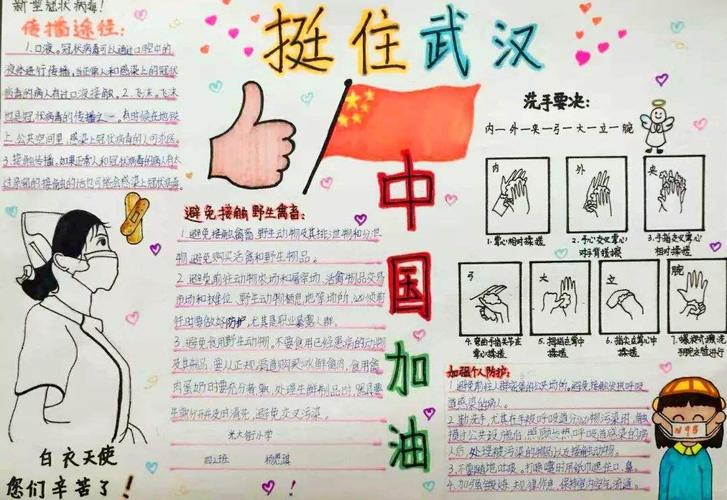 新型冠状病毒！
传播途径：
1.口液。冠状病毒可以通过口腔中的
液体进行传播，当正常人和感染上的冠状
病毒的病人有过口液接触。2.飞沫。飞沫
也是冠状病毒的传播之一，有时候在地铁
上公共空间里，感染上冠状病毒的人可
3.接触传播。如果正常人和冠状病毒的病人有太
过亲密的接触的话也可能会感染上冠状病毒。
挺住武汉
中国加油
避免接触野生禽畜：
1.避免接触禽畜、野生动物及其排泄物和分泌
物，避免购买活禽和野生物品。
2.避免前往动物农场和屠宰场、活禽物品交易
市场和摊位、野生动物栖息地等场所，必须前
往时要做好防护，尤其是职业暴露人群。
3.避免食用野生动物，不要食用已经患病的动物
及其制品；要从正规渠道购买冰鲜禽肉，食用禽
肉蛋奶时要充分煮熟，处理生鲜制品时，器具要
生熟分开并及时清洗，避免交叉污染。
光大街小学
四2班 杨
洗手要决：
内一外一夹一弓一大一立一腕
内
外
夹
1.掌心相对揉搓
2.手心交叉掌心对手背揉搓
3.手指交叉掌心相对揉搓
弓
大
立
腕
4.弯曲手指关节在掌心揉搓
5.拇指在掌中揉搓
6.指尖在掌心中揉搓
7.螺旋式擦洗手腕交替进行
加强个人防护：
1.避免前往人群密集的公共场所。避免接触发热呼吸
道感染的病人。
2.勤洗手。尤其在手被呼吸道分泌物污染时、触
摸过公共设施后、照顾发热呼吸道感染的病
人后、处理被污染的物品以及接触动物。
3.不要随地吐痰。打喷嚏时用纸巾遮住口、鼻。
4.加强锻炼，规律作息，保持室内空气流通。
N95
白衣天使
您们辛苦了！